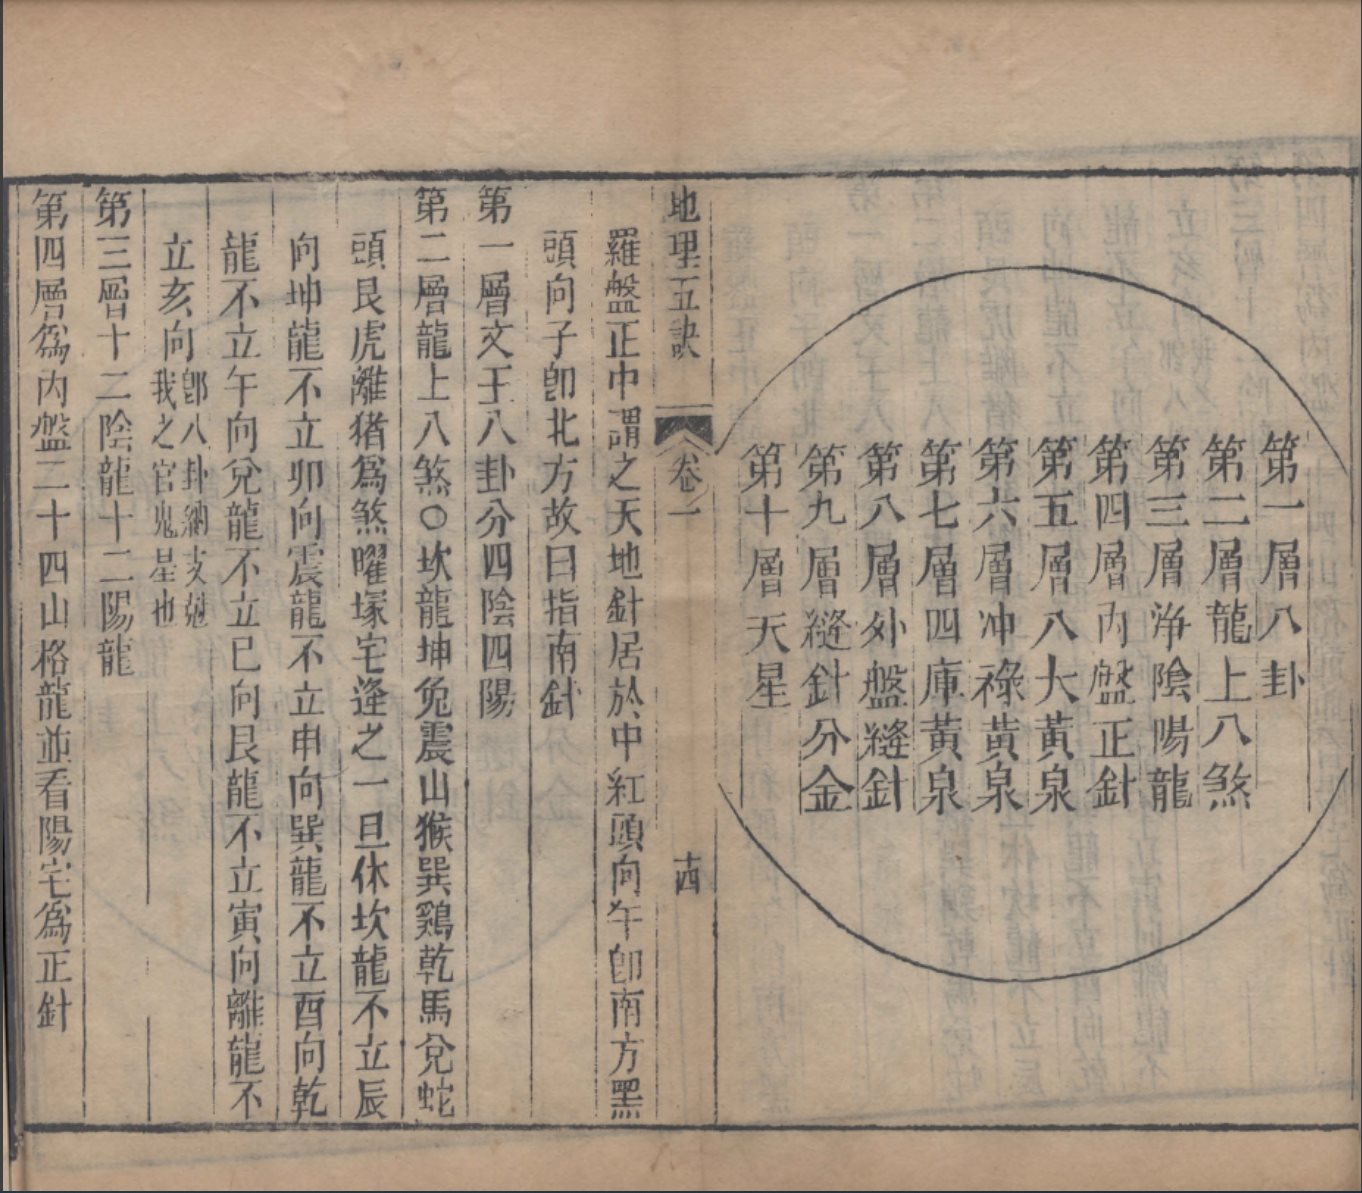 第一層八卦
第二層龍上八煞
第三層淨陰陽龍
第四層內盤正針
第五層八大黃泉
第六層冲祿黃泉
第七層四庫黃泉
第八層外盤縫針
第九層縫針分金
第十層天星
地理五訣
卷一
十四
羅盤正中謂之天地針居於中紅頭向午卽南方黑
頭向子卽北方故曰指南針
第一層文王八卦分四陰四陽
第二層龍上八煞○坎龍坤兔震山猴巽鷄乾馬兌蛇
頭艮虎離猪爲煞曜塚宅逢之一旦休坎龍不立辰
向坤龍不立卯向震龍不立申向巽龍不立酉向乾
龍不立午向兌龍不立巳向艮龍不立寅向離龍不
立亥向卽八卦納支尅
我之官鬼星也
第三層十二陰龍十二陽龍
第四層爲內盤二十四山格龍並看陽宅爲正針